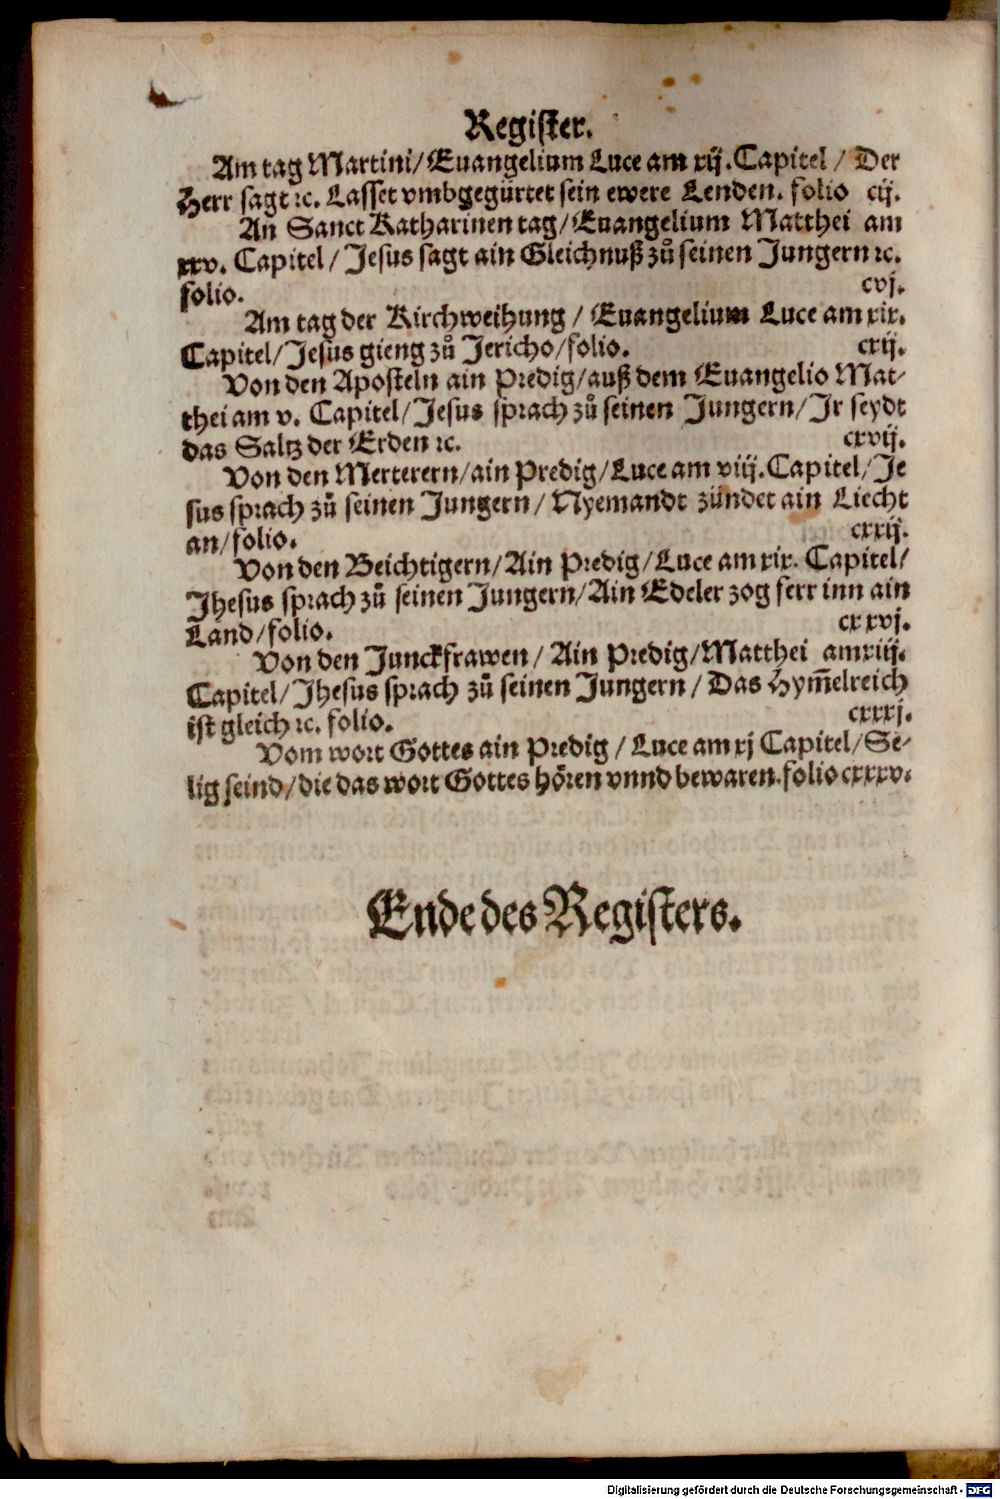 Register.
Am tag Martini/Euangelium Luce am xij.Capitel / Der
Herr sagt ꝛc. Lasset vmbgegürtet sein ewere Lenden. folio cij.
An Sanct Katharinen tag/Euangelium Matthei am
xxv. Capitel/Jesus sagt ain Gleichnuß zů seinen Jungern ꝛc.
folio. cvj.
Am tag der Kirchweihung / Euangelium Luce am xix.
Capitel/Jesus gieng zů Jericho/folio. cxij.
Von den Aposteln ain Predig/auß dem Euangelio Mat-
thei am v. Capitel/Jesus sprach zů seinen Jungern/Jr seydt
das Saltz der Erden ꝛc. cxvij.
Von den Merterern/ain Predig/Luce am viij.Capitel/Je
sus sprach zů seinen Jungern/Nyemandt zündet ain Liecht
an/folio. cxxij.
Von den Beichtigern/Ain Predig/Luce am xix. Capitel/
Jhesus sprach zů seinen Jungern/Ain Edeler zog ferr inn ain
Land/folio. cxxvj.
Von den Junckfrawen/ Ain Predig/Matthei am xiij.
Capitel/Jhesus sprach zů seinen Jungern/Das Hym̃elreich
ist gleich ꝛc. folio. cxxxj.
Vom wort Gottes ain Predig/Luce am xj Capitel/Se-
lig seind/die das wort Gottes hören vnnd bewaren.folio cxxxv.
Ende des Registers.
Digitalisierung gefördert durch die Deutsche Forschungsgemeinschaft - DFG